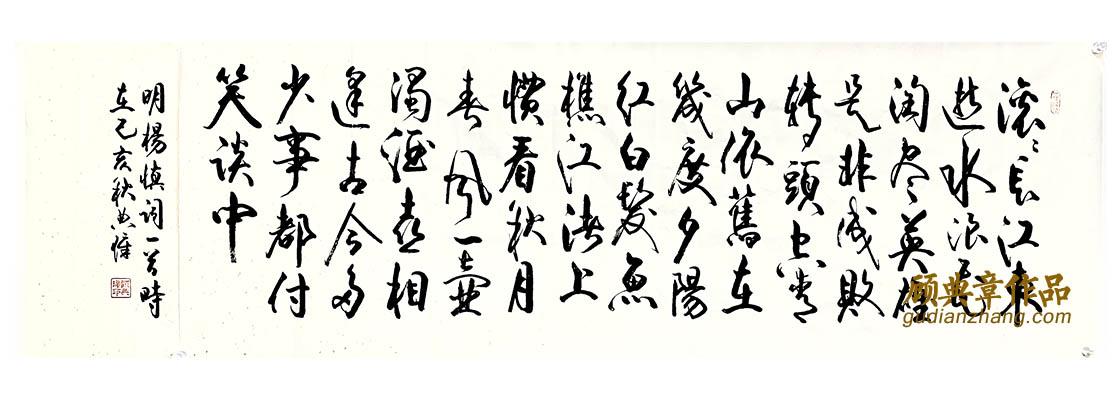 滚〻長江東
逝水浪花
淘尽英雄
是非成敗
轉頭空青
山依舊在
幾度夕陽
红白髮魚
樵江渚上
惯看秋月
春风一壷
濁酒喜相
逢古今多
少事都付
笑谈中
明楊慎词一首時
在己亥秋典
顾典章作品
gudianzhang.com